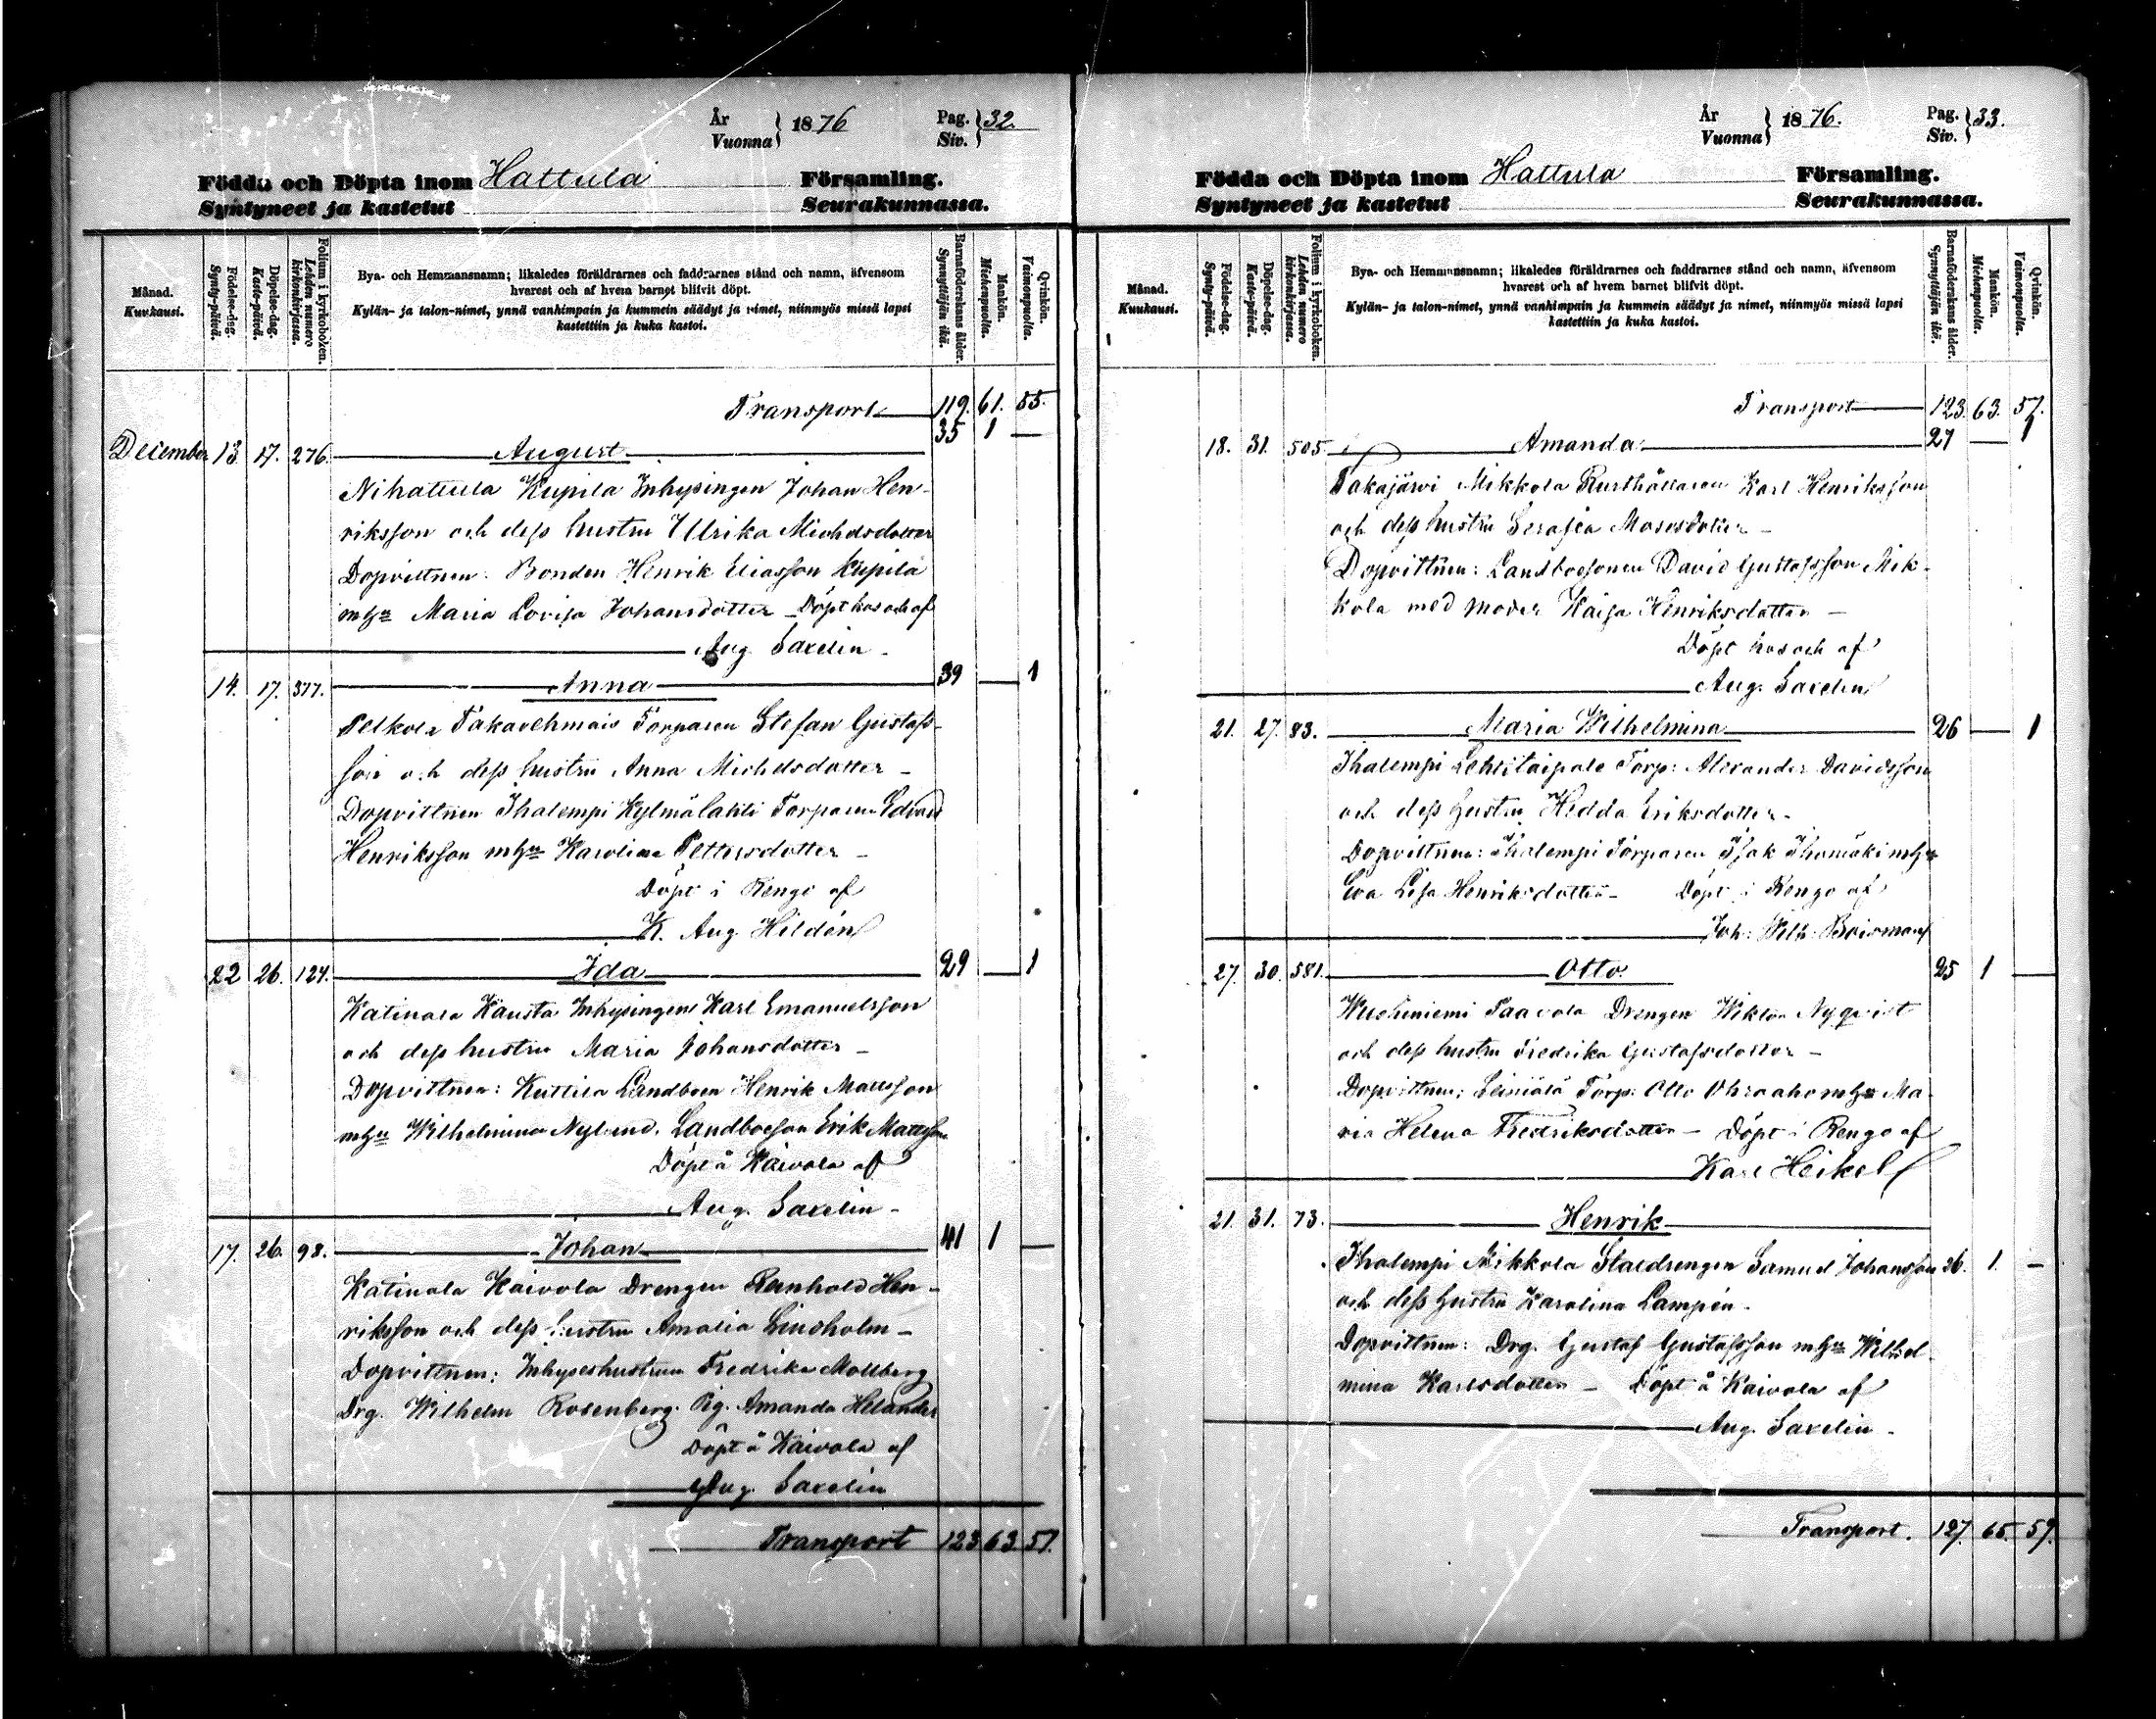 År
Vuonna } 1876
Pag.
Siv. } 32.
Födda och Döpta inom Hattula Församling.
Syntyneet ja kastetut Seurakunnassa.
Månad.
Kuukausi.
Födelse-dag.
Synty-päivä.
Döpelse-dag.
Kaste-päivä.
Folium i kyrkoboken.
Lehden numero
kirkonkirjassa.
Bya- och Hemmansnamn; likaledes föräldrarnes och faddrarnes stånd och namn, äfvensom
hvarest och af hvem barnet blifvit döpt.
Kylän- ja talon-nimet, ynnä vanhimpain ja kummein säädyt ja nimet, niinmyös missä lapsi
kastettiin ja kuka kastoi.
Barnaföderskans ålder.
Synnyttäjän ikä.
Mankön.
Miehenpuolta.
Qvinkön.
Vaimonpuolta.
Transport 119. 61. 55.
December 13 17. 276. August 35 1 —
Nihattula Kupila Inhysingen Johan Hen-
riksson och dess hustru Ulrika Michelsdotter
Dopvittnen: Bonden Henrik Eliasson Kupila
mhu Maria Lovisa Johansdotter – Döpt hos och af
Aug. Saxelin –
14. 17. 377. Anna 39 — 1
Pelkola Takavehmais Torparen Stefan Gustafs-
son och dess hustru Anna Michelsdotter –
Dopvittnen Ihalempi Kylmälahti Torparen Edvard
Henriksson mhu Karolina Pettersdotter –
Döpt i Rengo af
K. Aug. Hildén
22 26. 124. Ida 29 — 1
Katinala Kausta Inhysingen Karl Emanuelsson
och dess hustru Maria Johansdotter –
Dopvittnen: Kuttila Landboen Henrik Mattsson
mhu Wilhelmina Nylund. Landboeson Erik Mattsson
Döpt å Kaivola af
Aug. Saxelin –
17. 26. 98. Johan 41 1 —
Katinala Kaivola Drengen Reinhold Hen-
riksson och dess hustru Amalia Lindholm –
Dopvittnen: Inhyseshustrun Fredrika Mollberg
Drg. Wilhelm Rosenberg. Pig. Amanda Helander
Döpt å Kaivola af
Aug. Saxelin
Transport 123 63. 57.
År
Vuonna } 1876.
Pag.
Siv. } 33.
Födda och Döpta inom Hattula Församling.
Syntyneet ja kastetut Seurakunnassa.
Månad.
Kuukausi.
Födelse-dag.
Synty-päivä.
Döpelse-dag.
Kaste-päivä.
Folium i kyrkoboken.
Lehden numero
kirkonkirjassa.
Bya- och Hemmansnamn; likaledes föräldrarnes och faddrarnes stånd och namn, äfvensom
hvarest och af hvem barnet blifvit döpt.
Kylän- ja talon-nimet, ynnä vanhimpain ja kummein säädyt ja nimet, niinmyös missä lapsi
kastettiin ja kuka kastoi.
Barnaföderskans ålder.
Synnyttäjän ikä.
Mankön.
Miehenpuolta.
Qvinkön.
Vaimonpuolta.
Transport 123. 63. 57.
18. 31. 505. Amanda 27 — 1
Takajärvi Mikkola Rusthållaren Karl Henriksson
och dess hustru Serafia Mosesdotter –
Dopvittnen: Landboesonen David Gustafsson Mik-
kola med moder Kaisa Henriksdotter –
Döpt hos och af
Aug. Saxelin
21. 27. 83. Maria Wilhelmina 26 — 1
Ihalempi Torp: Alexander Davidsson
och dess hustru Hedda Eriksdotter –
Dopvittnen: Ihalempi Torparen Isak Ihamäki mhu
Eva Lisa Henriksdotter – Döpt i Rengo af
Joh: Wilh: Boisman
27. 30. 581. Otto. 25 1 —
Wuohiniemi Paavola Drengen Wiktor Nyqvist
och dess hustru Fredrika Gustafsdotter –
Dopvittnen: Leiniälä Torp: Otto Ohraaho mhu Ma-
ria Helena Fredriksdotter – Döpt i Rengo af
Karl Heikel
21. 31. 73. Henrik
Ihalempi Mikkola Staldrengen Samuel Johansson 26. 1. –
och dess hustru Karolina Lampén –
Dopvittnen: Drg. Gustaf Gustafsson mhu Wilhel-
mina Karlsdotter – Döpt å Kaivola af
Aug. Saxelin –
Transport. 127. 65. 59.